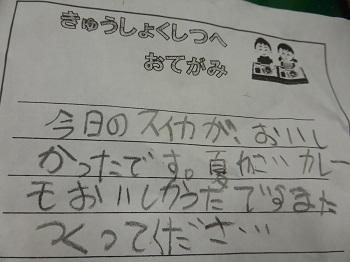 きゅうしょくしつへ
おてがみ
今日のスイカが、おいし
かったです。夏やさいカレー
もおいしかったですまた
つくってください